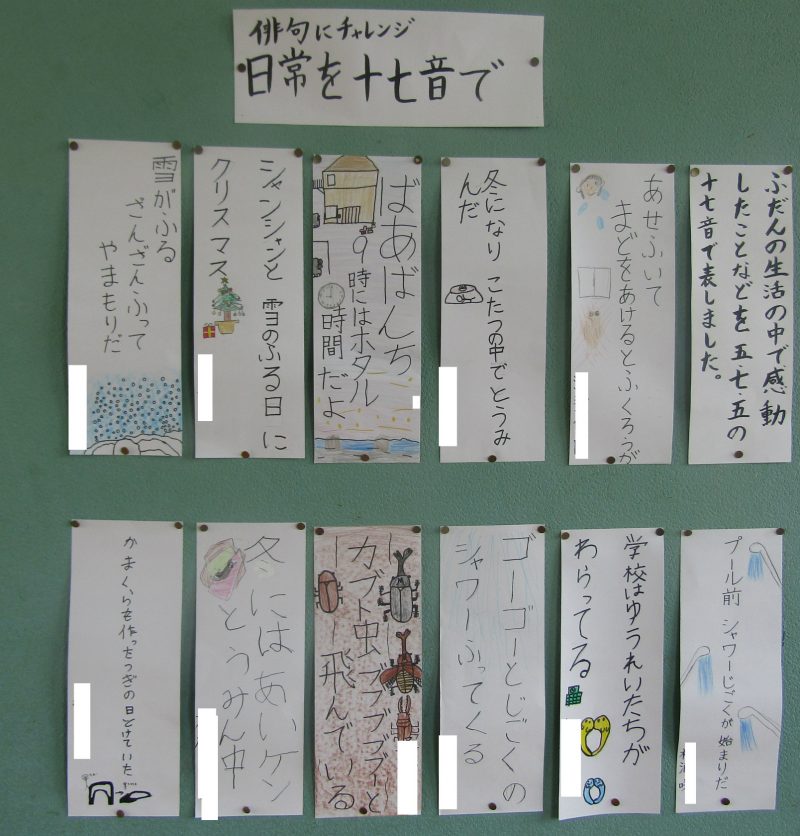 俳句にチャレンジ
日常を十七音で
ふだんの生活の中で感動
したことなどを五・七・五の
十七音で表しました。
あせふいて
まどをあけるとふくろうが
冬になり こたつの中でとうみ
んだ
ばあばんち
9時にはホタル
時間だよ
シャンシャンと 雪のふる日に
クリスマス
雪がふる
ざんざんふって
やまもりだ
プール前 シャワーじごくが始まりだ
学校はゆうれいたちが
わらってる
ゴーゴーとじごくの
シャワーふってくる
カブト虫ブブブブブーと
飛んでいる
冬にはあいケン
とうみん中
かまくらを作ったつぎの日とけていた